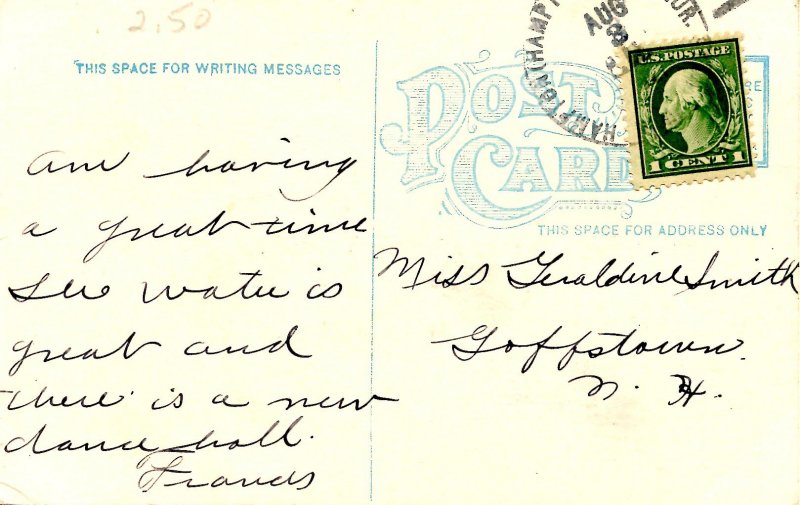 2.50
THIS SPACE FOR WRITING MESSAGES
am having
a great time
The water is
great and
there is a new
dance hall.
Francis
POST
CARD
THIS SPACE FOR ADDRESS ONLY
AUG
U.S. POSTAGE
1 CENT 1
Miss Geraldine Smith
Goffstown.
N. H.